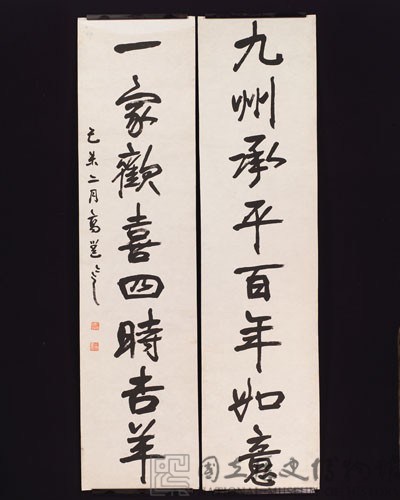 九州承平百年如意
一家歡喜四時吉羊
己未二月高逸鴻
國立歷史博物館